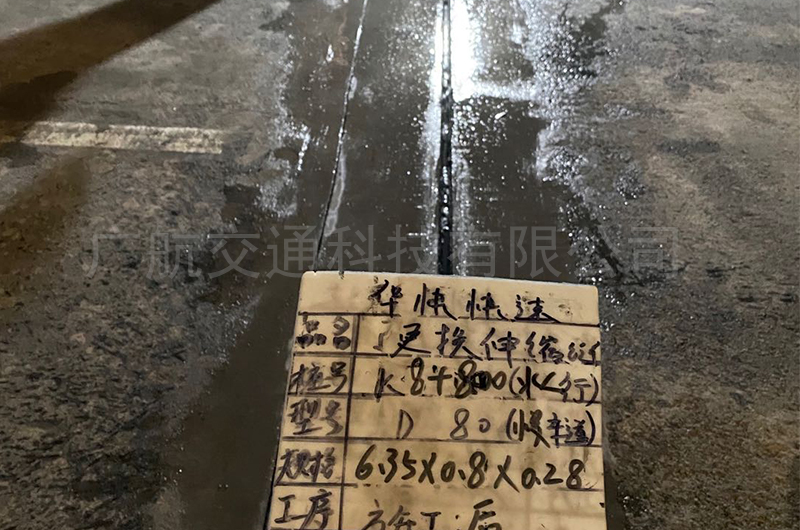 广航交通科技有限公司
华快快速
品名 更换伸缩缝
桩号 K8+800(北行)
型号 D 80(慢车道)
规格 6.35×0.8×0.28
工序 施工后